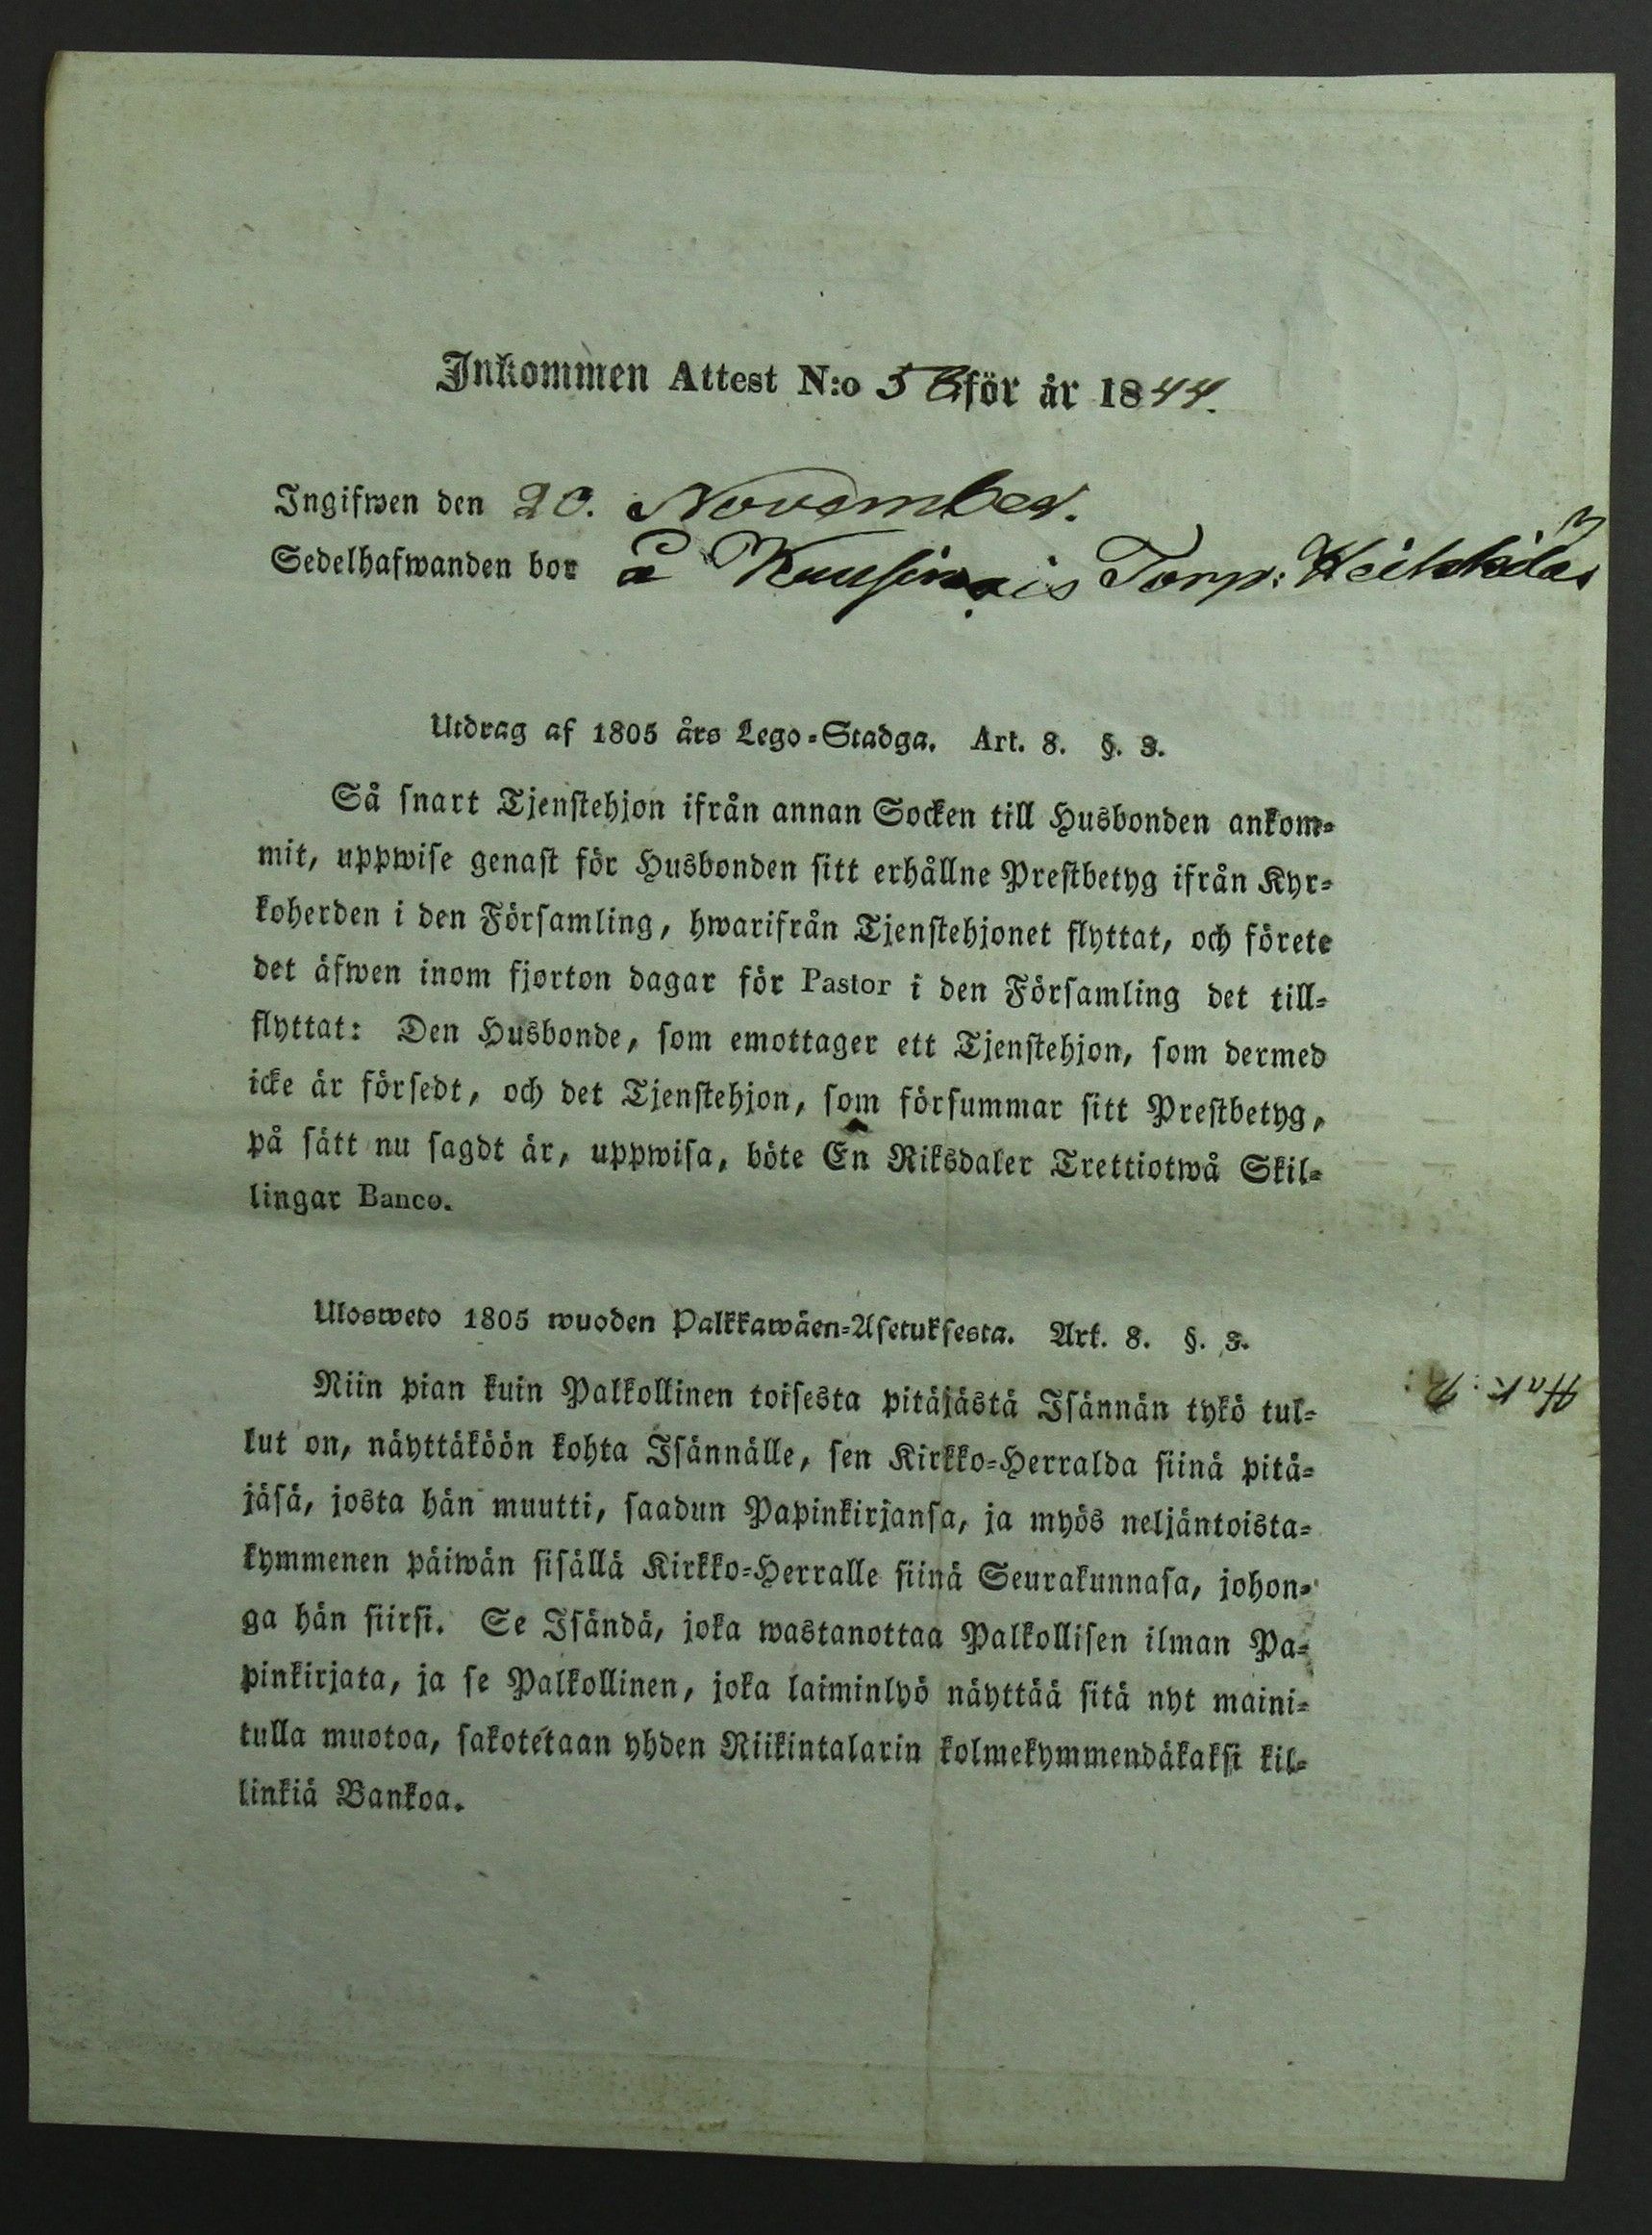 Inkommen Attest N:o 58 för år 1844.
Ingifwen den 20. November.
Sedelhafwanden bor å Torp: Heikkilä
Utdrag af 1805 års Lego-Stadga. Art. 8. §. 3.
Så snart Tjenstehjon ifrån annan Socken till Husbonden ankom-
mit, uppwise genast för Husbonden sitt erhållne Prestbetyg ifrån Kyr-
koherden i den Församling, hwarifrån Tjenstehjonet flyttat, och förete
det äfwen inom fjorton dagar för Pastor i den Församling det till-
flyttat: Den Husbonde, som emottager ett Tjenstehjon, som dermed
icke är försedt, och det Tjenstehjon, som försummar sitt Prestbetyg,
på sätt nu sagdt är, uppwisa, böte En Riksdaler Trettiotwå Skil-
lingar Banco.
Ulosweto 1805 wuoden Palkkawäen-Asetuksesta. Art. 8. §. 3.
Niin pian kuin Palkollinen toisesta pitäjästä Isännän tykö tul-
lut on, näyttäköön kohta Isännälle, sen Kirkko-Herralda siinä pitä-
jäsä, josta hän muutti, saadun Papinkirjansa, ja myös neljäntoista-
kymmenen päiwän sisällä Kirkko-Herralle siinä Seurakunnasa, johon-
ga hän siirsi. Se Isändä, joka wastanottaa Palkollisen ilman Pa-
pinkirjata, ja se Palkollinen, joka laiminlyö näyttää sitä nyt maini-
tulla muotoa, sakotetaan yhden Riikintalarin kolmekymmendäkaksi kil-
linkiä Bankoa.